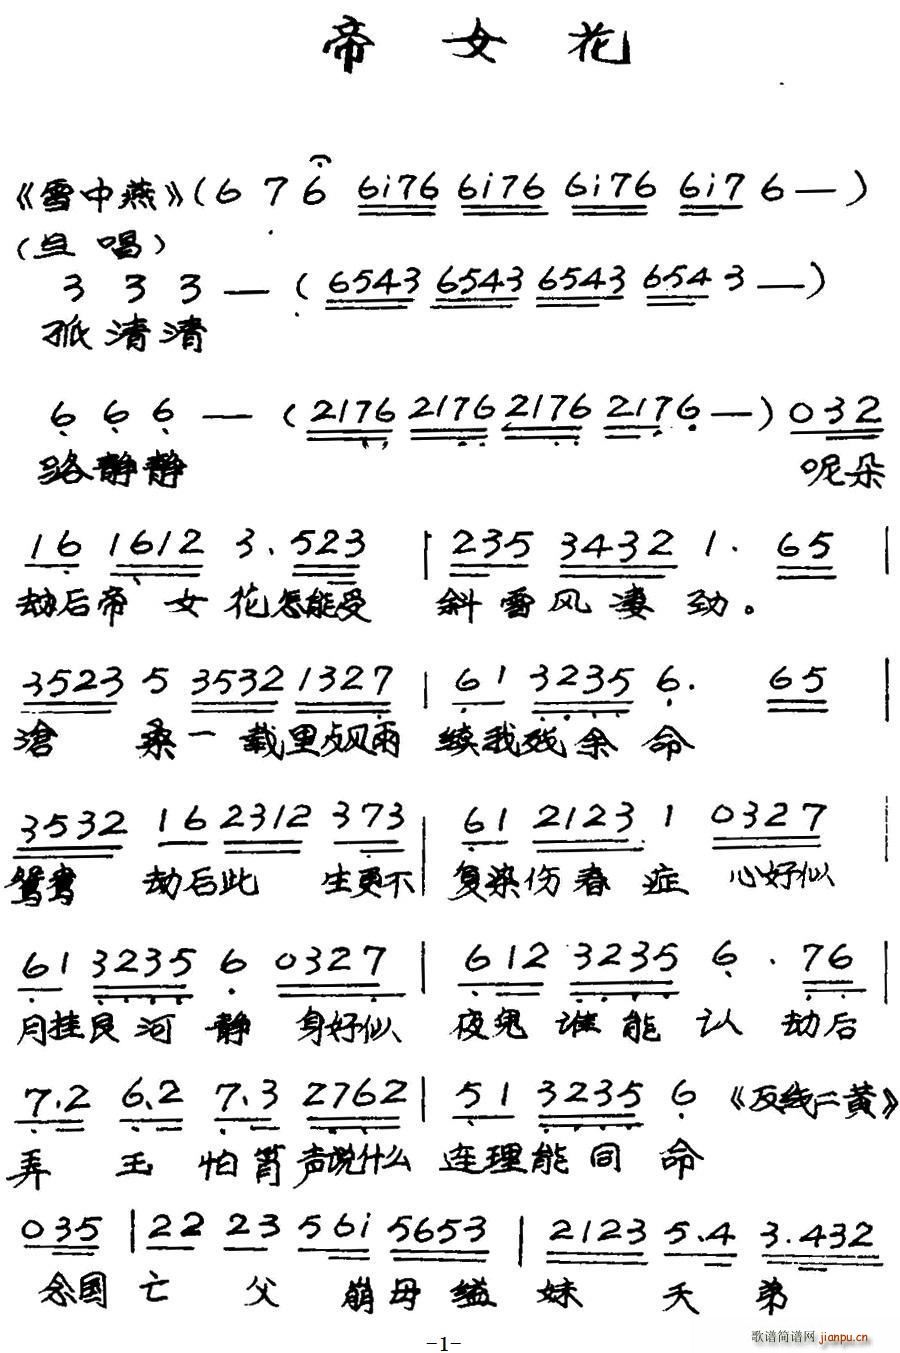 帝女花
《雪中燕》(6 7 6 6i76 6i76 6i76 6i7 6 —)
(旦唱)
3 3 3 — (6543 6543 6543 654 3 —)
孤清清
6 6 6 — (2176 2176 2176 217 6 —) 032
路静静 呢朵
16 1612 3. 523 | 235 3432 1. 65 |
劫后帝女花怎能受 斜雪风凄劲。
3523 5 3532 1327 | 61 3235 6. 65 |
沧桑一载里点风雨 续我残余命
3532 16 2312 373 | 61 2123 1 0327 |
鸳鸯劫后此生更不 复染伤春症 心好似
61 3235 6 0327 | 612 3235 6. 76 |
月挂艮河静 身好似 夜鬼谁能认 劫后
7.2 6.2 7.3 2762 | 51 3235 6 《反线二黄》
弄玉怕箫声说什么 连理能同命
035 | 22 23 56i 5653 | 2123 5.4 3.432
念国亡父崩母缢 妹夭弟
-1-
歌谱简谱网 jianpu.cn